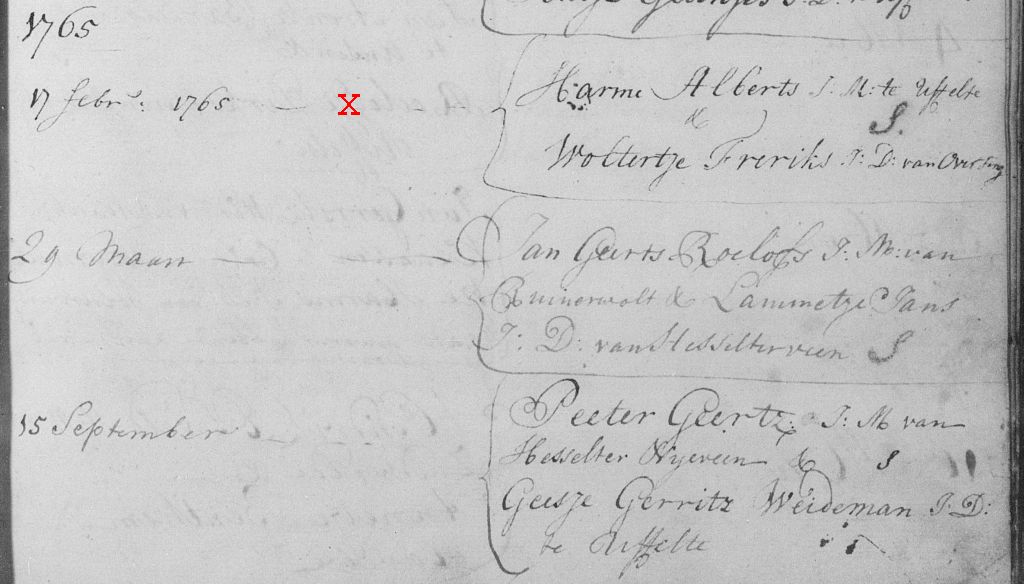 1765
17 febr: 1765 X
Harme Alberts J: M: te Uffelte
&
S.
Woltertje Freriks J: D: van
29 Maart
Jan Geerts Roelofs J: M: van
Ruinerwolt & Lammetje Jans
J: D: van Hesselterveen S
15 September
Peeter Geertz J: M van
Hesselter Nyeveen & S
Geesje Gerritz Weideman J: D:
te Uffelte